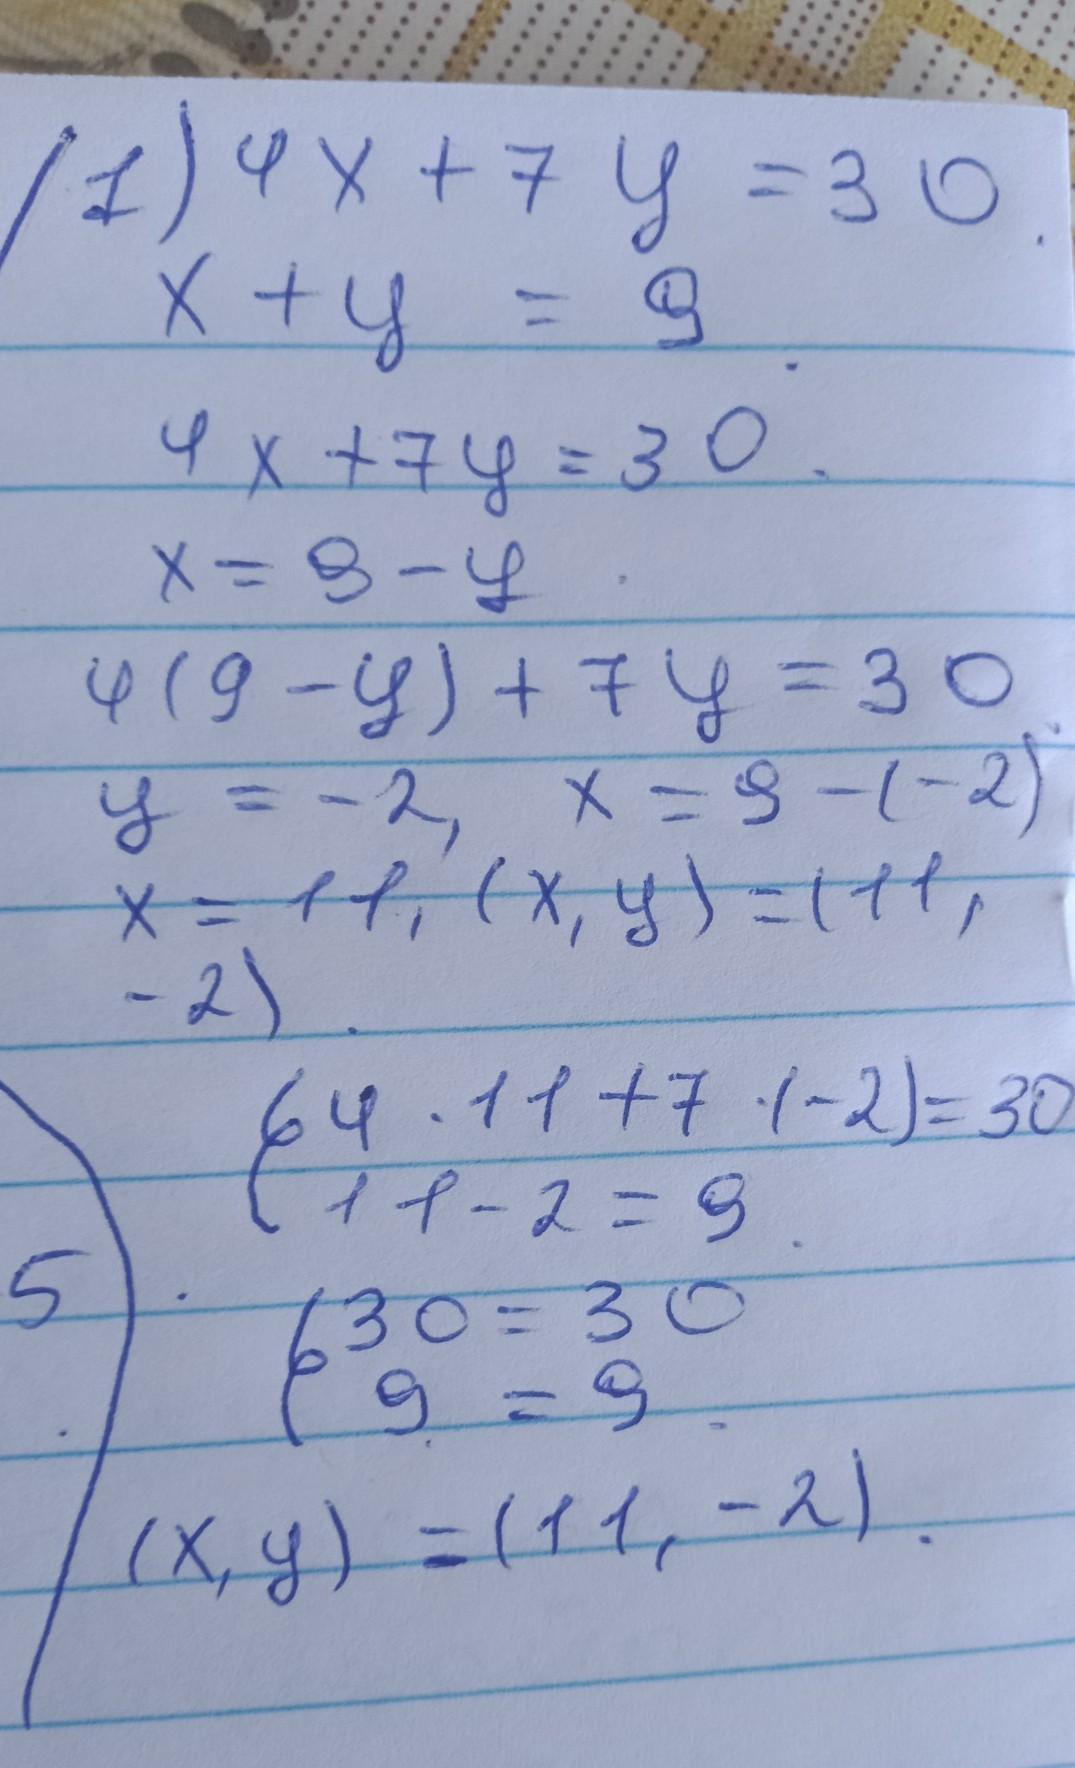 1) 4x + 7y = 30.
x + y = 9.
4x + 7y = 30.
x = 9 - y.
4(9 - y) + 7y = 30.
y = -2, x = 9 - (-2)
x = 11, (x, y) = (11,
-2).
{ 4 · 11 + 7 · (-2) = 30
11 - 2 = 9.
5
{ 30 = 30
9 = 9.
(x, y) = (11, -2).